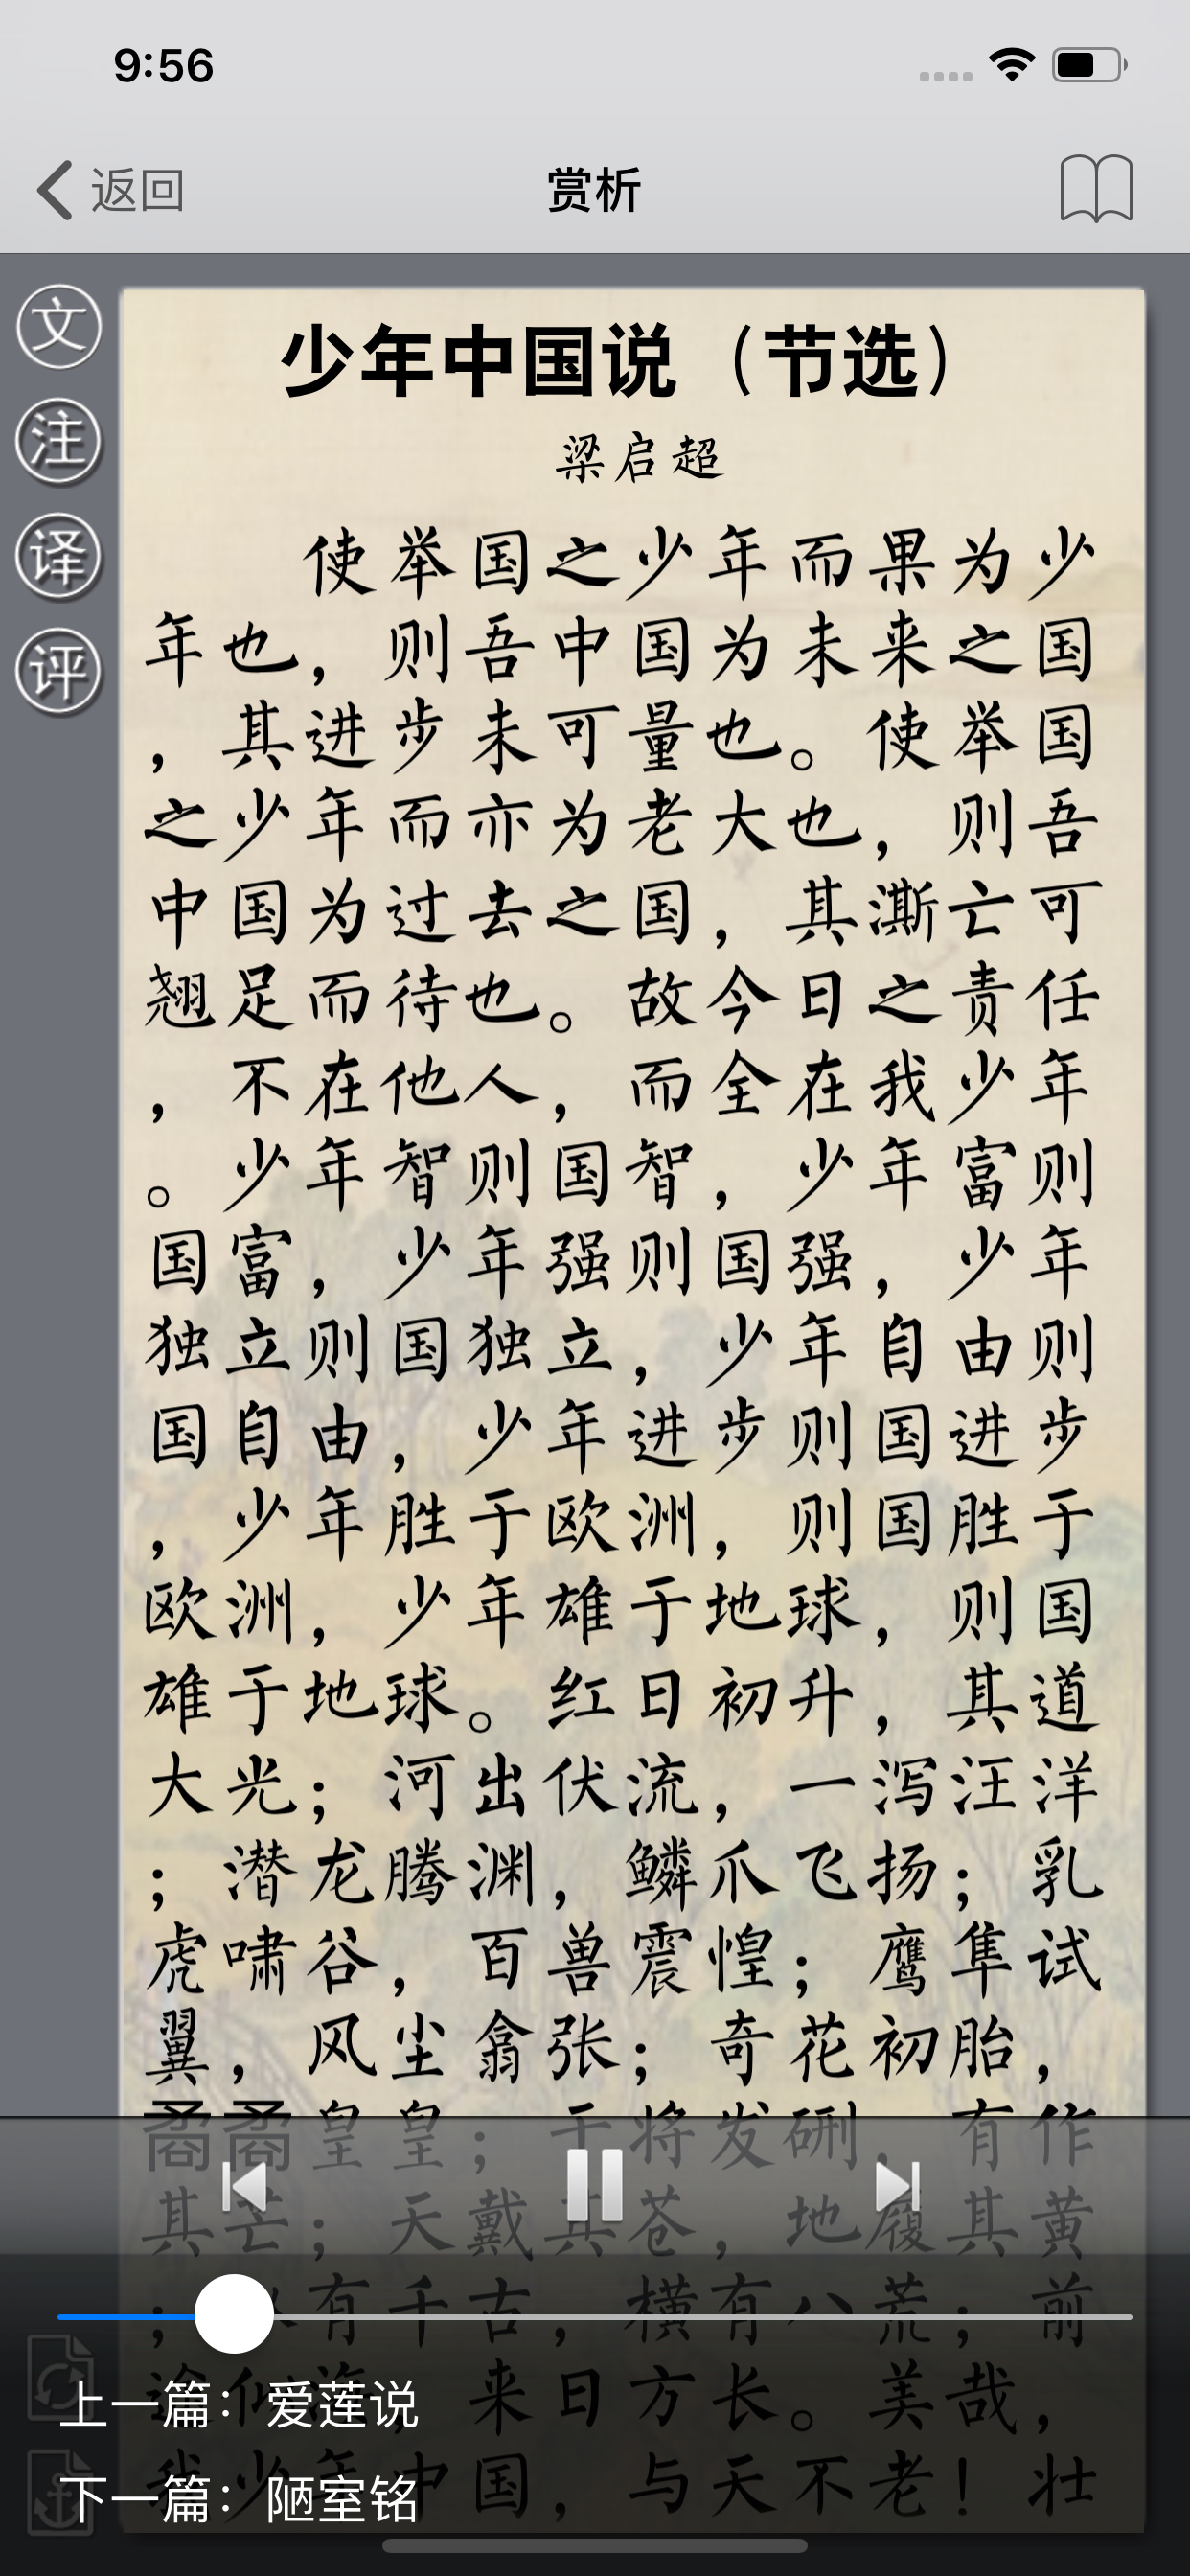 9:56
返回
赏析
文
注
译
评
少年中国说（节选）
梁启超
使举国之少年而果为少
年也，则吾中国为未来之国
，其进步未可量也。使举国
之少年而亦为老大也，则吾
中国为过去之国，其澌亡可
翘足而待也。故今日之责任
，不在他人，而全在我少年
。少年智则国智，少年富则
国富，少年强则国强，少年
独立则国独立，少年自由则
国自由，少年进步则国进步
，少年胜于欧洲，则国胜于
欧洲，少年雄于地球，则国
雄于地球。红日初升，其道
大光；河出伏流，一泻汪洋
；潜龙腾渊，鳞爪飞扬；乳
虎啸谷，百兽震惶；鹰隼试
翼，风尘翕张；奇花初胎，
矞矞皇皇；干将发硎，有作
其芒；天戴其苍，地履其黄
；有千古，横有八荒；前
途似海，来日方长。美哉，
我少年中国，与天不老！壮
上一篇：爱莲说
下一篇：陋室铭